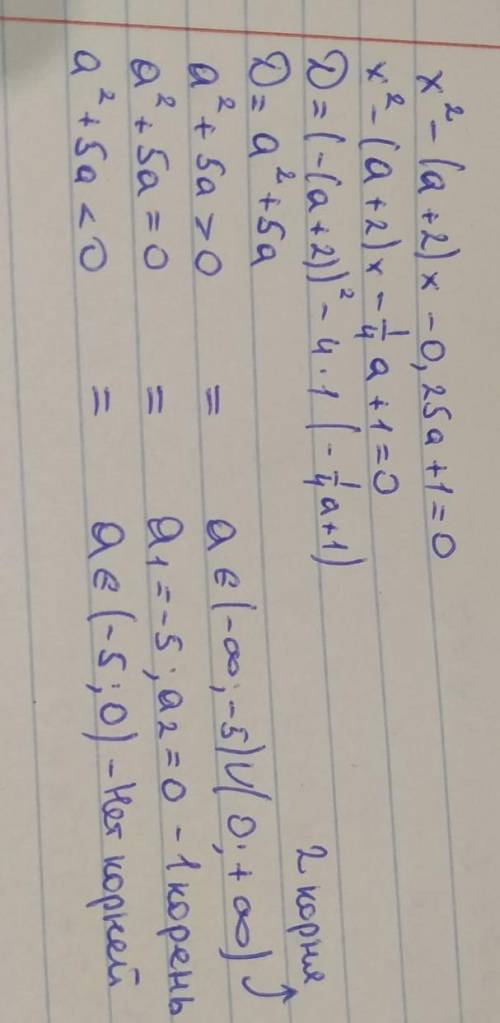 x² - (a+2)x - 0,25a + 1 = 0
x² - (a+2)x - 1/4 a + 1 = 0
D = (-(a+2))² - 4·1 (-1/4 a + 1)
D = a² + 5a
2 корня
a² + 5a > 0 = a ∈ (-∞; -5) ∪ (0; +∞)
a² + 5a = 0 = a₁ = -5; a₂ = 0 - 1 корень
a² + 5a < 0 = a ∈ (-5; 0) - Нет корней